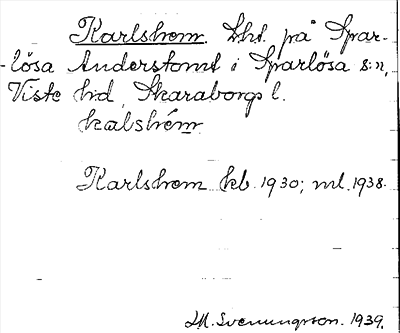 Karlshem. Lht. på Spar-
lösa Anderstomt i Sparlösa s:n,
Viste hd, Skaraborgs l.
kalshém
Karlshem kb. 1930; ml. 1938.
M. Svenungsson. 1939.